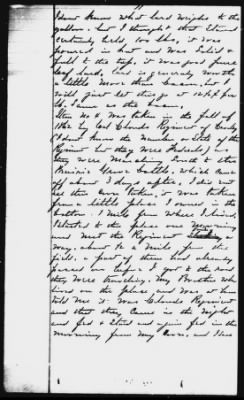 I dont know what lard weighs to the
gallon, but I thought that stand
certainly held 100 lbs, it was
poured in hot and was solid &
full to the top. it was good pure
leaf lard. Lard is generally worth
a little more than bacon, but
will just let things at 12
lb. Same as the bacon.
Item No 4 Was taken in the fall of
1862 by Col Clouds Regiment of Cavalry
(I dont know the number or State of the
Regiment but they were Federals)
they were Marching South to the
Prairie Grove battle, which came
off about 3 days after, I did not
see this Corn taken, it was taken
from a little place I owned in the
bottom. 1 Mile from where I lived,
I started to the place one morning
and Met the Regiment on the
way, about 1/2 a Mile from the
field. a part of them had already
passed on before I got to the road
they were traveling. My Brother who
lived on the place and was at home
told Me it was Clouds Regiment
and that they Came in the night
and fed & Stayed and again fed in the
morning from My Corn, and I saw